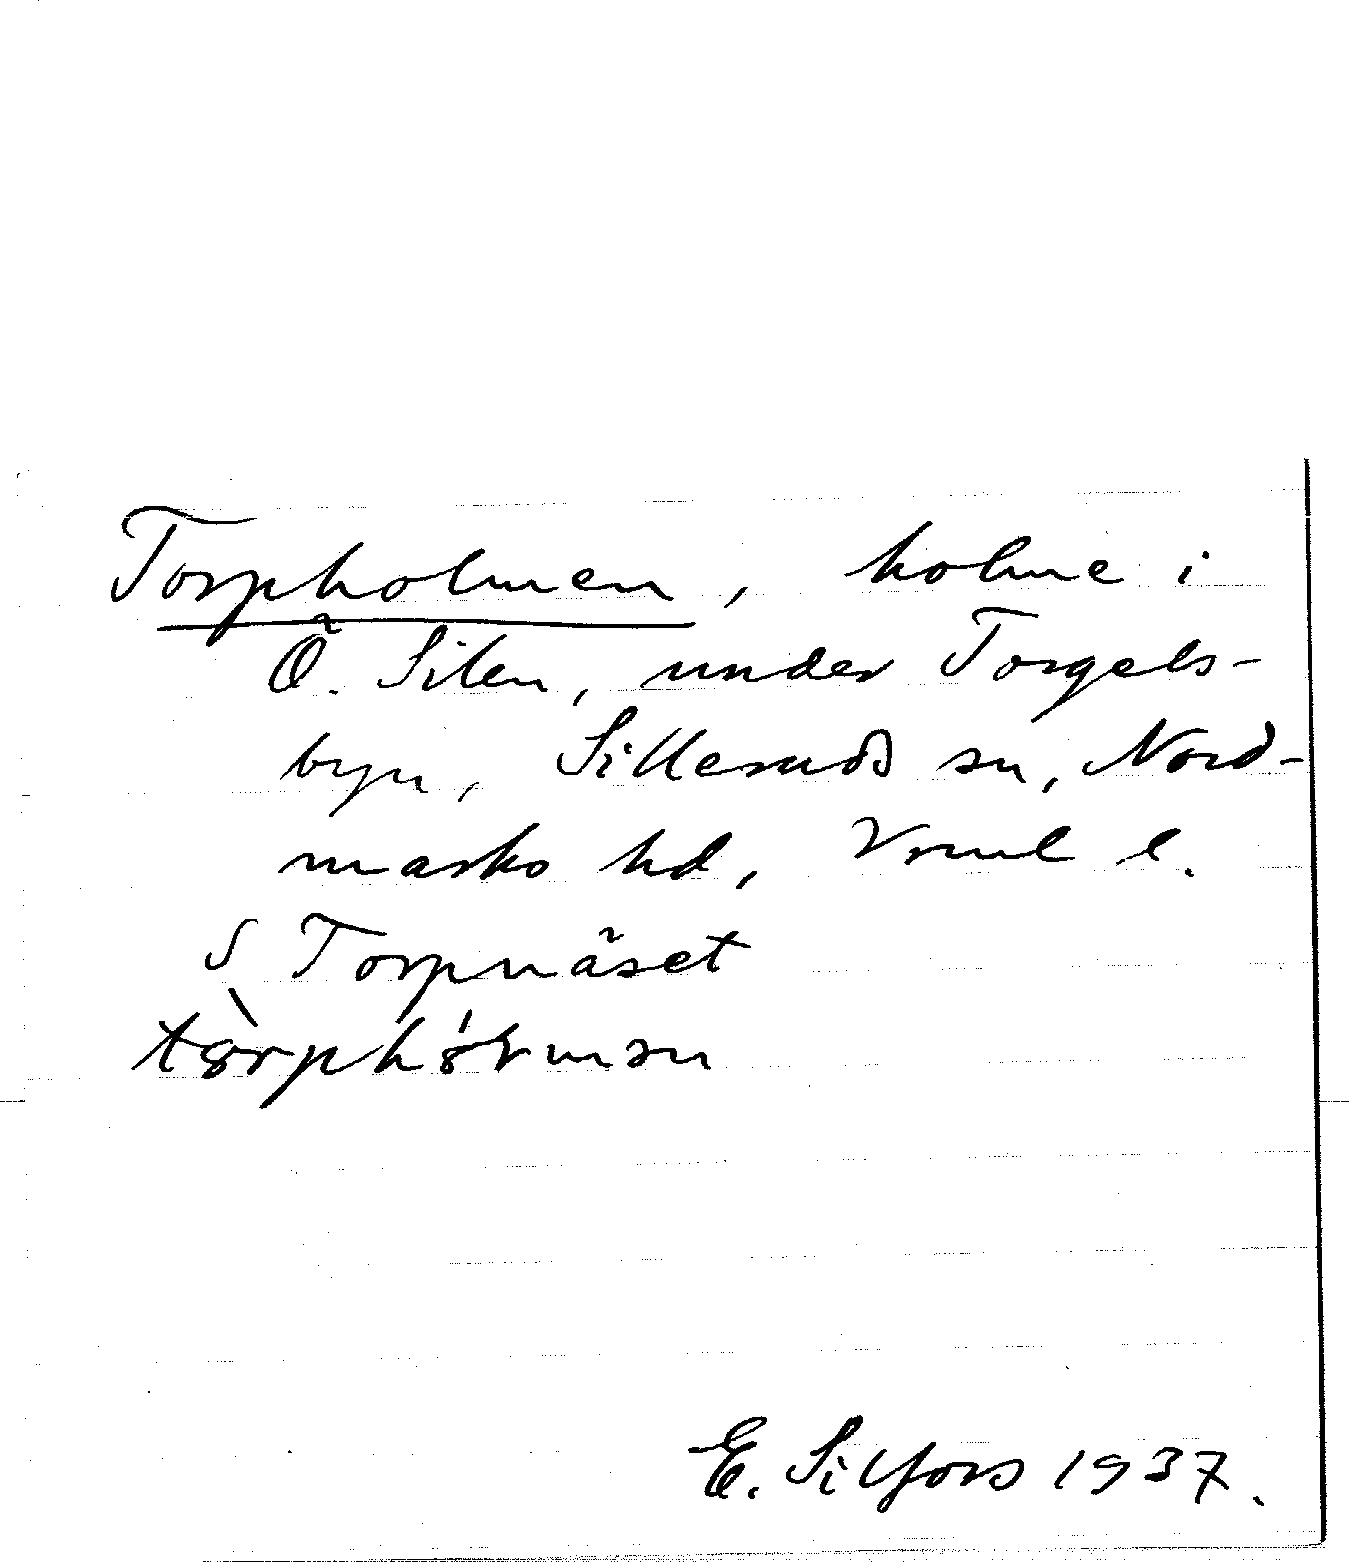 Torpholmen, holme i
Ö. Silen, under Torgels-
byn, Sillerud sn, Nord-
marks hd, Vrml l.
S Torpnäset
E. Silfors 1937.